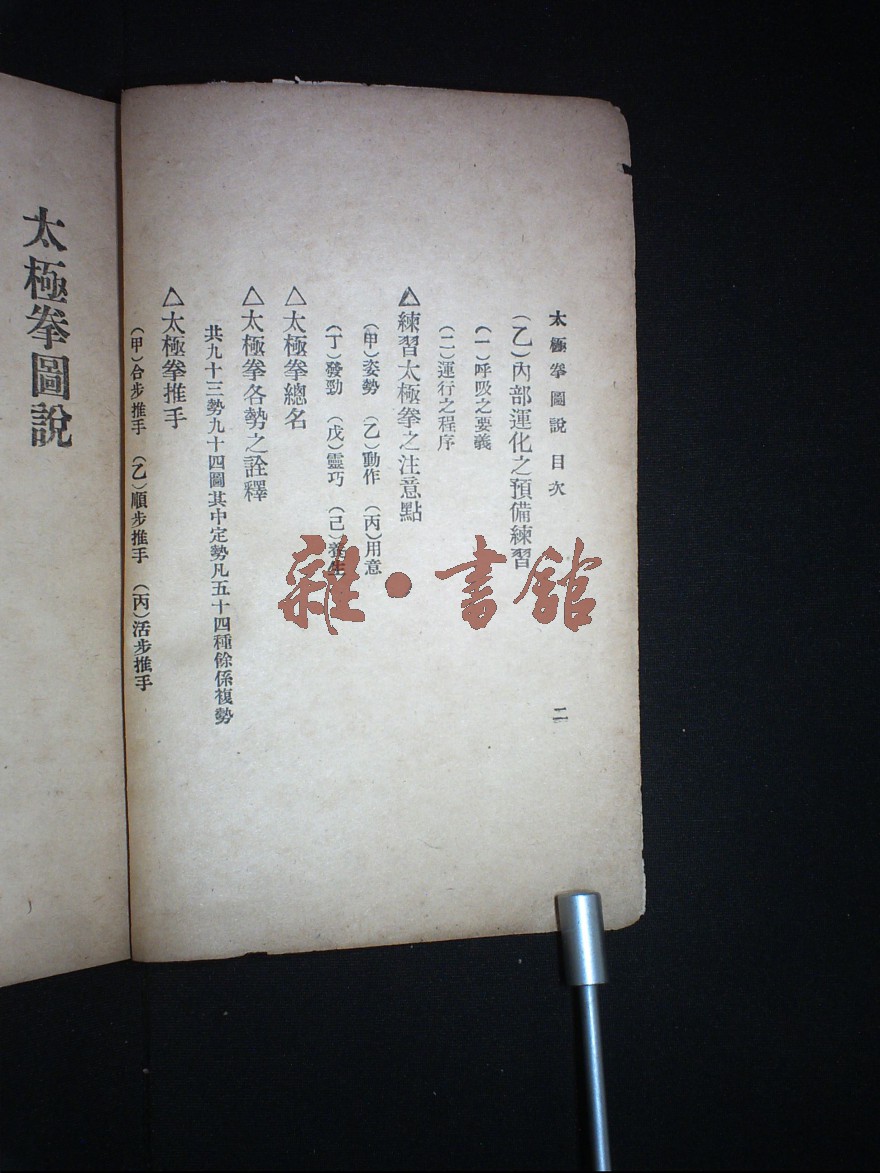 太極拳圖說 目次 二
(乙)內部運化之預備練習
(一)呼吸之要義
(二)運行之程序
△練習太極拳之注意點
(甲)姿勢 (乙)動作 (丙)用意
(丁)發勁 (戊)靈巧 (己)養生
△太極拳總名
△太極拳各勢之詮釋
共九十三勢九十四圖其中定勢凡五十四種餘係複勢
△太極拳推手
(甲)合步推手 (乙)順步推手 (丙)活步推手
太極拳圖說
雜·書館